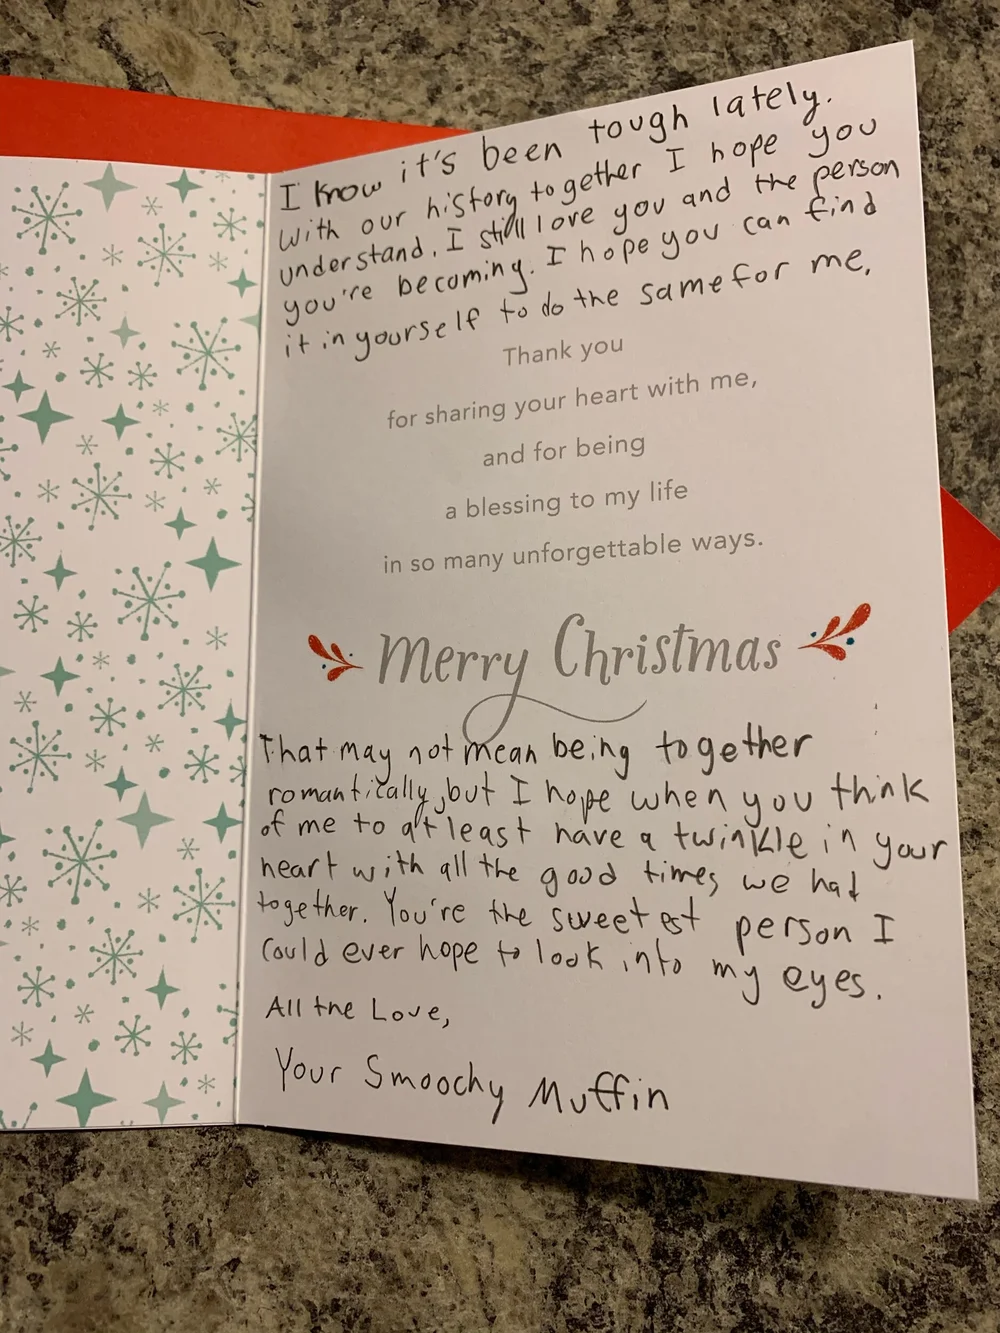 I know it's been tough lately.
With our history together I hope you
understand. I still love you and the person
you're becoming. I hope you can find
it in yourself to do the same for me.
Thank you
for sharing your heart with me,
and for being
a blessing to my life
in so many unforgettable ways.
Merry Christmas
That may not mean being together
romantically, but I hope when you think
of me to at least have a twinkle in your
heart with all the good times we had
together. You're the sweetest person I
could ever hope to look into my eyes.
All the Love,
Your Smoochy Muffin